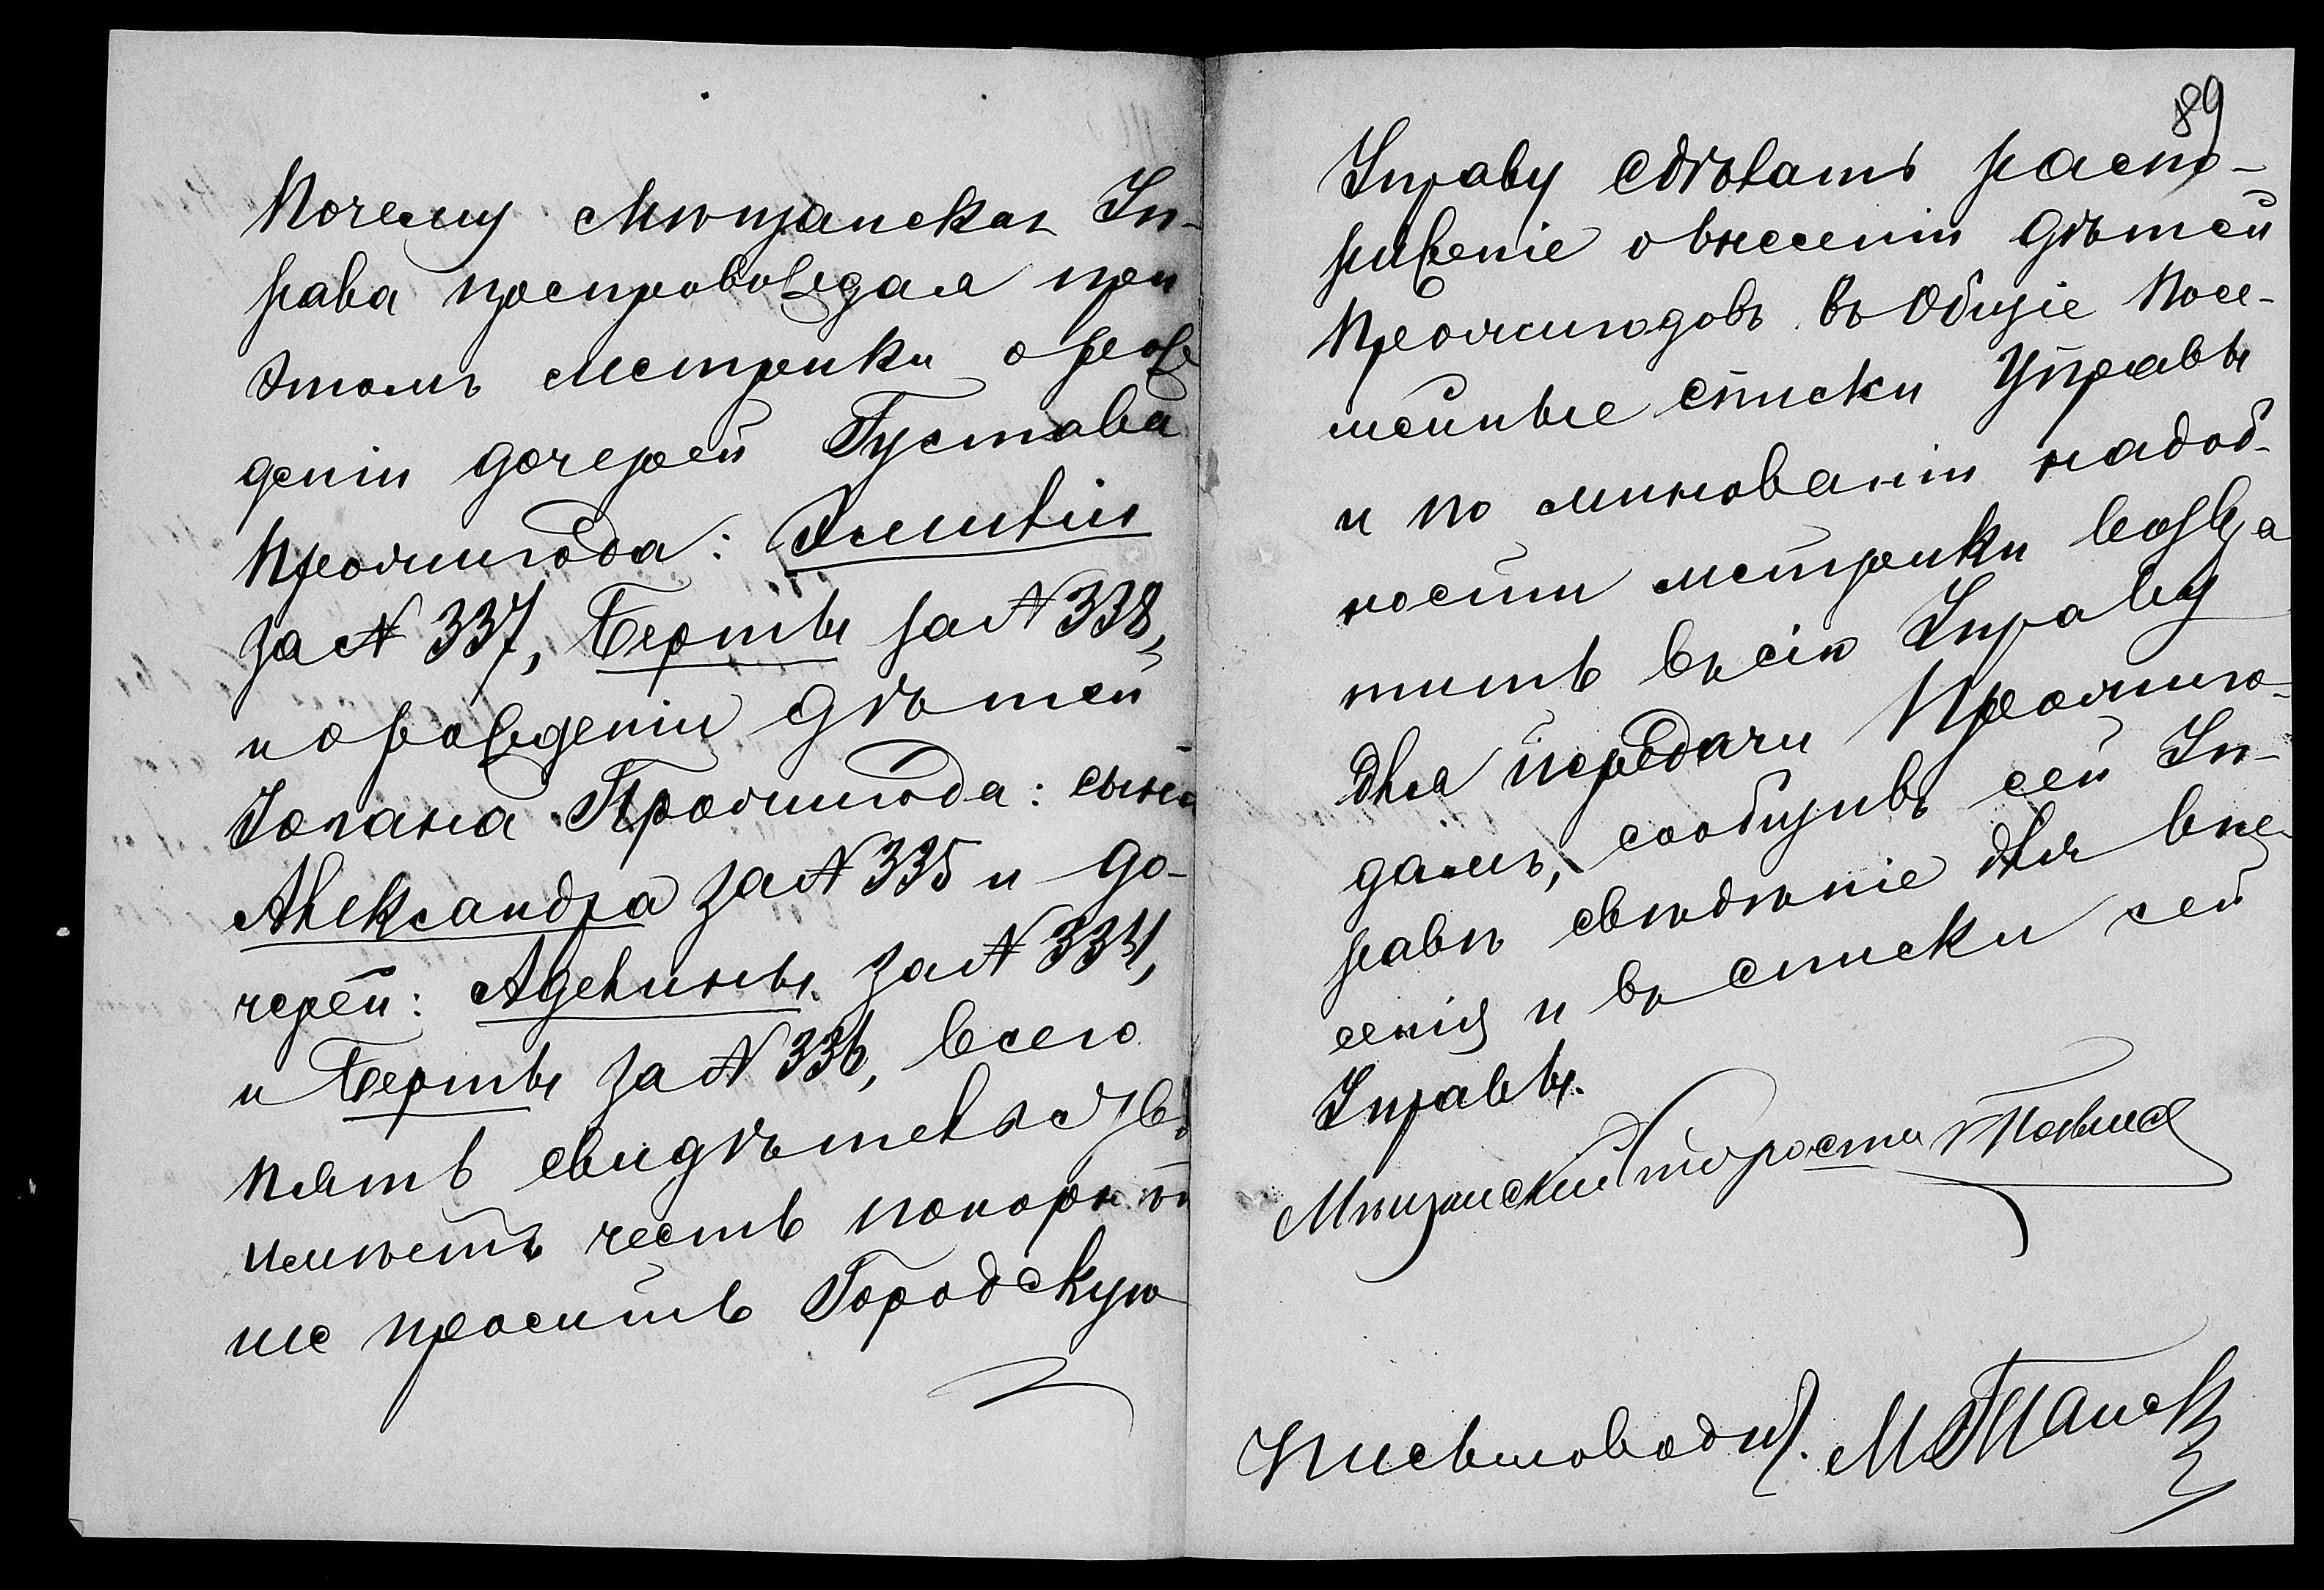 Почему Мѣщанская Уп-
рава препровождая при
этомъ метрики о рож
деніи дочерей Густава
Промингода: Эмиліи
за № 337, Берты за № 338,
и о рожденіи дѣтей
Іогана Промингода: сына
Александра за № 335 и до-
черей: Аделины за № 334,
и Берты за № 336, всего
пять свидѣтельствъ
имѣетъ честь покорнѣй
ше просить Городскую
89
Управу сдѣлать распо-
ряженіе о внесеніи дѣтей
Промингодовъ въ Общіе Посе-
мейные списки Управы
и по минованіи надоб-
ности метрики возвра
тить въ сію Управу
для передачи Проминго-
дамъ, сообщивъ сей Уп-
равѣ свѣдѣніе для вне-
сенія и въ списки сей
Управы.
Мѣщанскій Староста
Письмоводит.